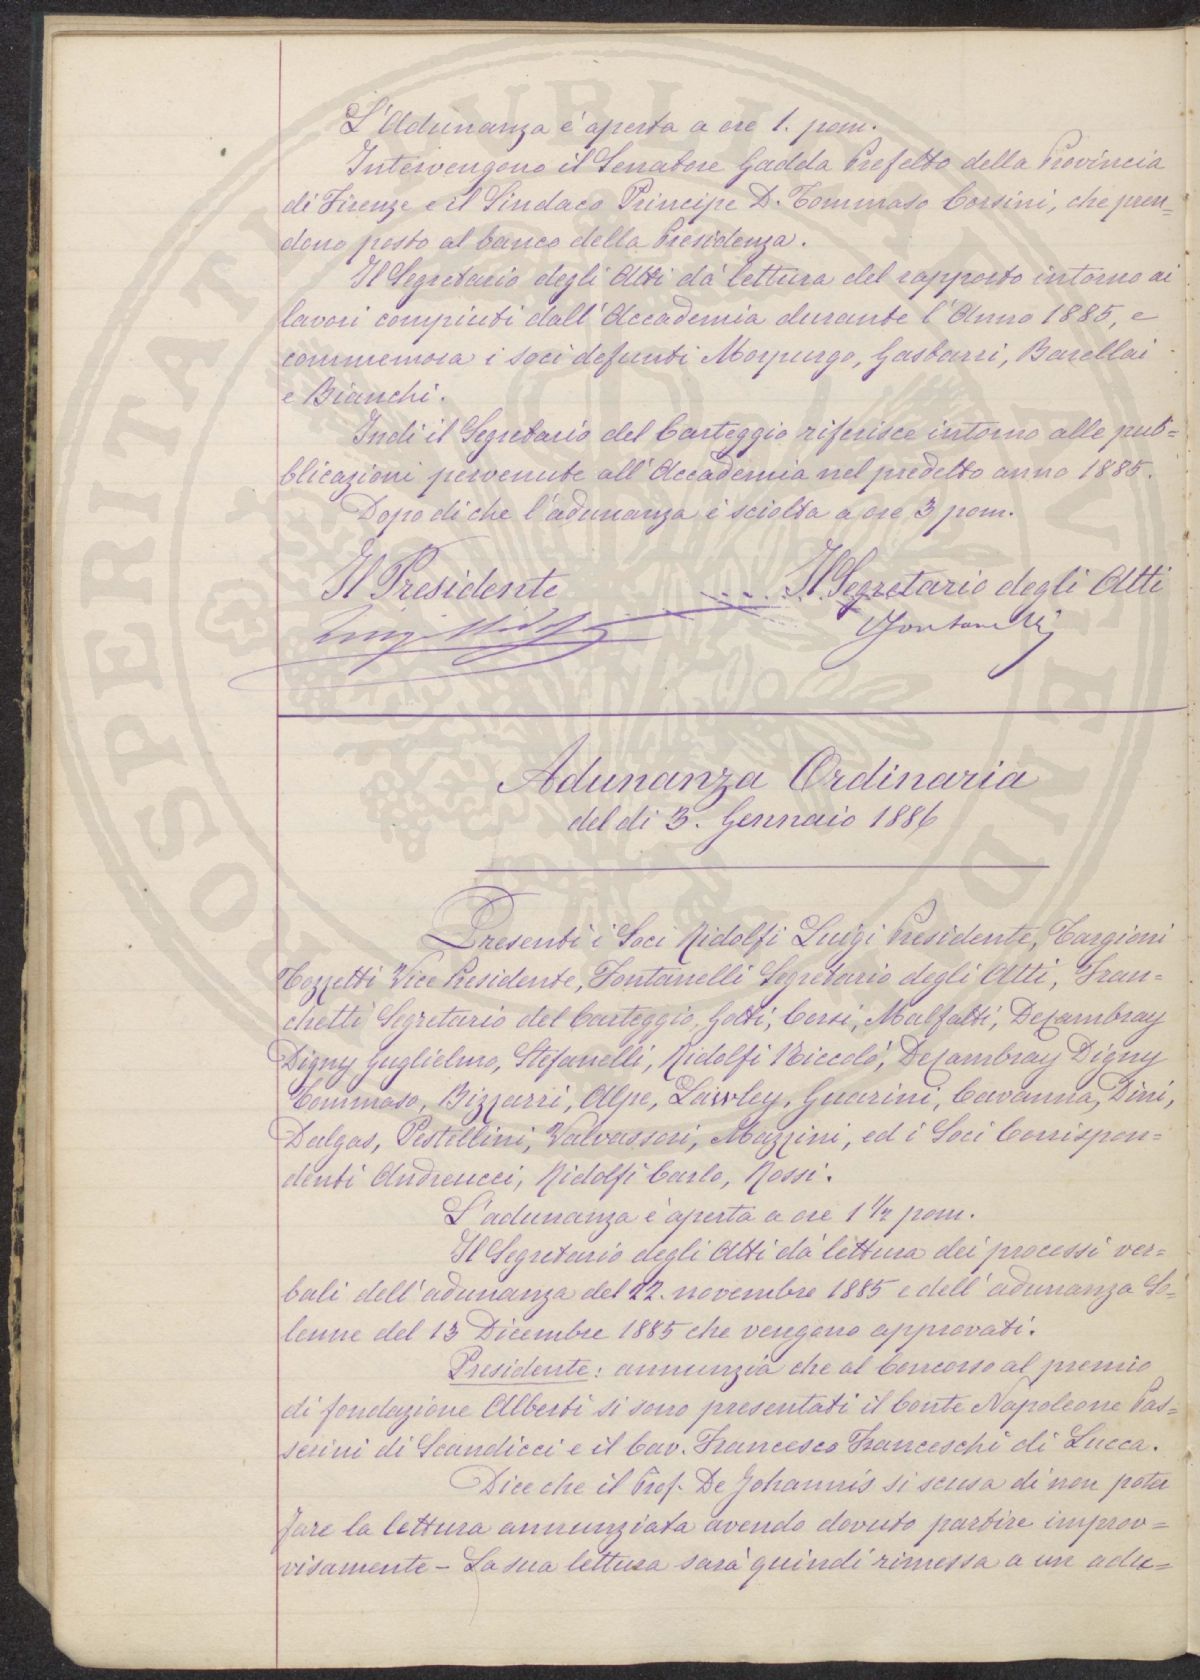 L'Adunanza è aperta a ore 1. pom.
Intervengono il Senatore Gadda Prefetto della Provincia
di Firenze e il Sindaco Principe D. Tommaso Corsini, che pren=
dono posto al banco della Presidenza.
Il Segretario degli Atti dà lettura del rapporto intorno ai
lavori compiuti dall'Accademia durante l'Anno 1885, e
commemora i soci defunti Morpurgo, Gasbarri, Barellai
e Bianchi.
Indi il Segretario del Carteggio riferisce intorno alle pub=
blicazioni pervenute all'Accademia nel predetto anno 1885.
Dopo di che l'adunanza è sciolta a ore 3 pom.
Il Presidente
Il Segretario degli Atti
Luigi Ridolfi
Fontanelli
Adunanza Ordinaria
del dì 3. Gennaio 1886
Presenti i Soci Ridolfi Luigi Presidente, Targioni
Tozzetti Vice Presidente, Fontanelli Segretario degli Atti, Fran=
chetti Segretario del Carteggio, Gotti, Corsi, Malfatti, De Cambray
Digny Guglielmo, Stefanelli, Ridolfi Niccolò, De Cambray Digny
Tommaso, Bizzarri, Alpe, Lawley, Guarini, Cavanna, Dini,
Dalgas, Pestellini, Valvassori, Mazzini, ed i Soci Corrispon=
denti Andreucci, Ridolfi Carlo, Rossi.
L'adunanza è aperta a ore 1 1/2 pom.
Il Segretario degli Atti dà lettura dei processi ver=
bali dell'adunanza del 22. novembre 1885 e dell'adunanza So=
lenne del 13 Dicembre 1885 che vengono approvati.
Presidente: annunzia che al Concorso al premio
di fondazione Alberti si sono presentati il Conte Napoleone Pas=
serini di Scandicci e il Cav. Francesco Franceschi di Lucca.
Dice che il Prof. De Johannis si scusa di non poter
fare la lettura annunziata avendo dovuto partire improv=
visamente – La sua lettura sarà quindi rimessa a un adu=
PROSPERITATI PUBLICAE AUGENDAE